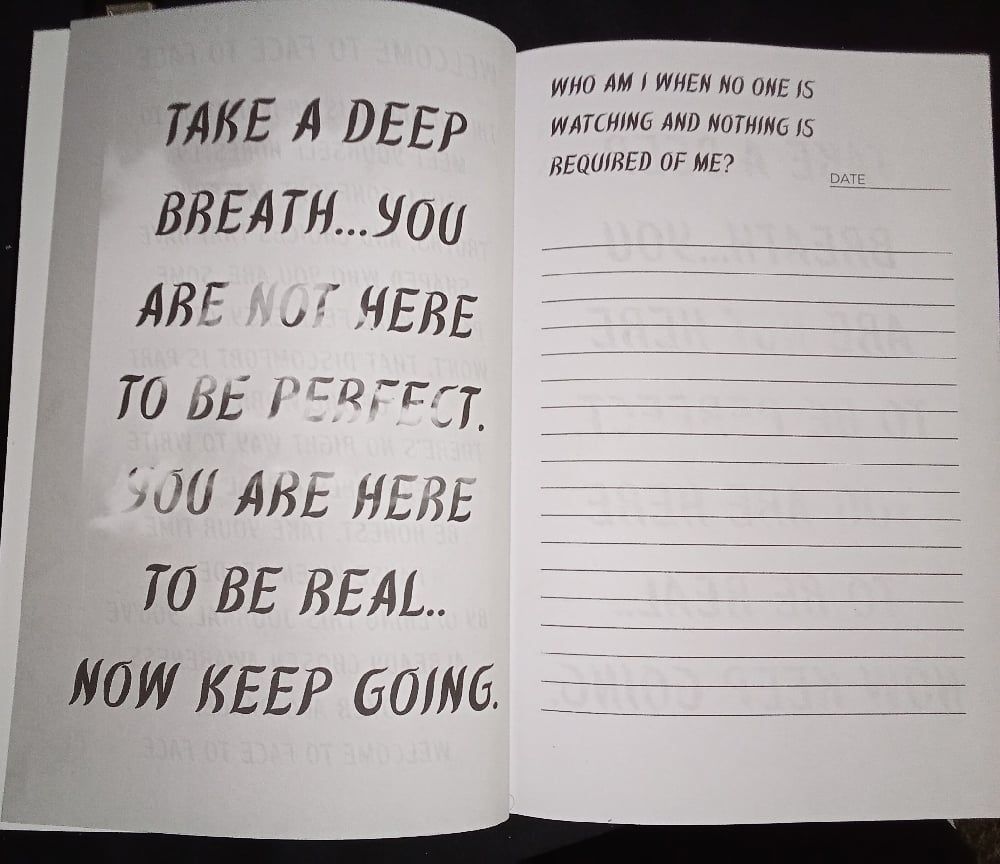 TAKE A DEEP
BREATH...YOU
ARE NOT HERE
TO BE PERFECT.
YOU ARE HERE
TO BE REAL..
NOW KEEP GOING.
WHO AM I WHEN NO ONE IS
WATCHING AND NOTHING IS
REQUIRED OF ME?
DATE